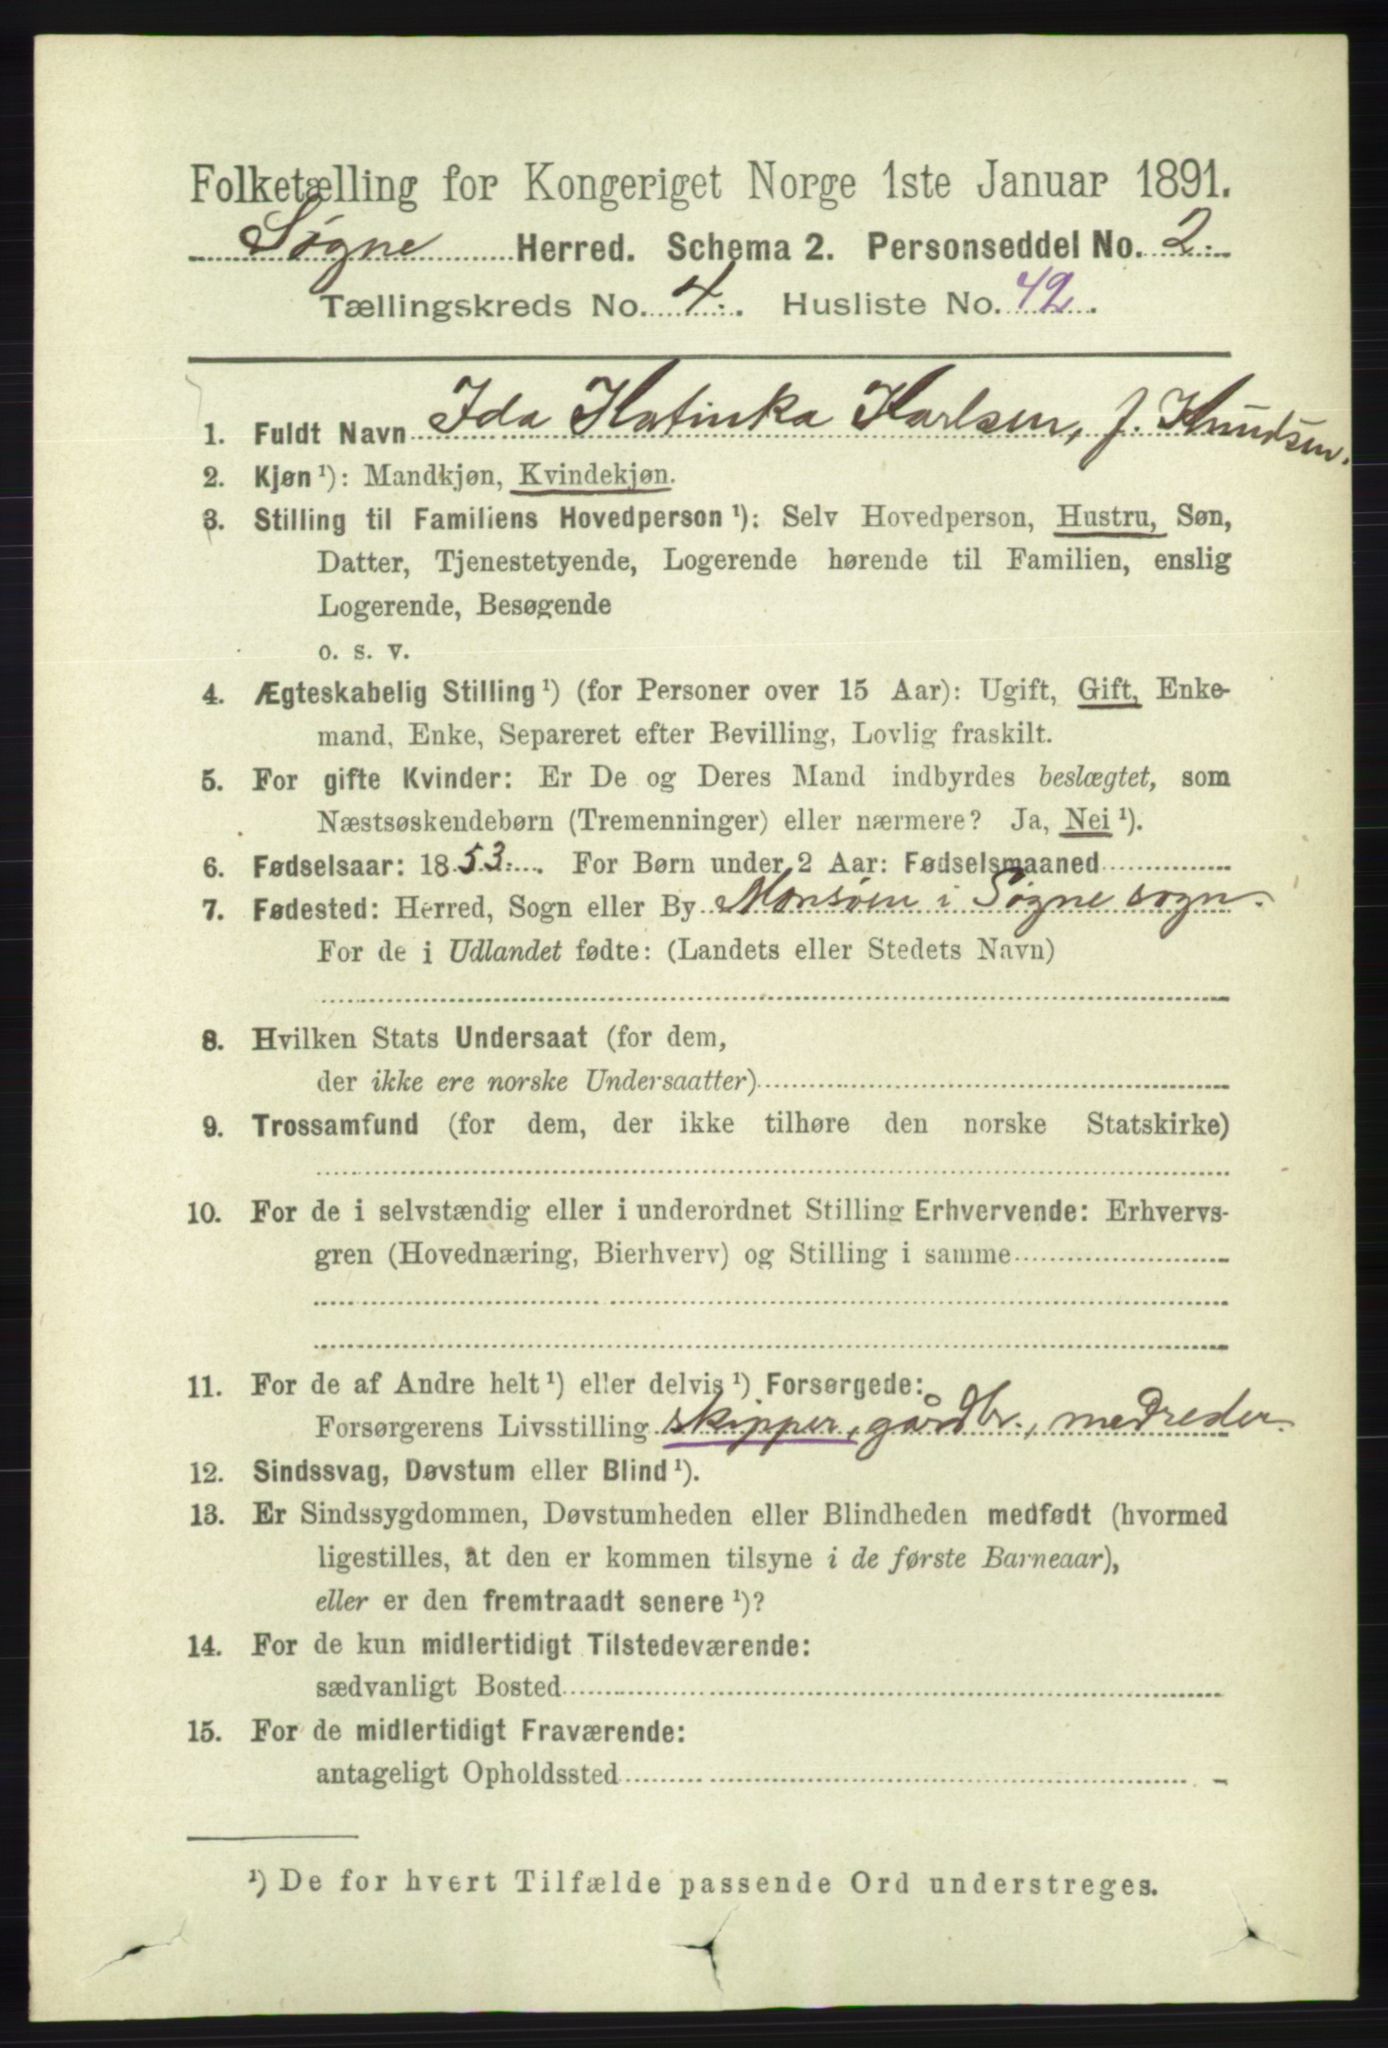 Folketælling for Kongeriget Norge 1ste Januar 1891.
Søgne Herred. Schema 2. Personseddel No. 2.
Tællingskreds No. 4. Husliste No. 42.
1. Fuldt Navn Ida Katinka Karlsen, f. Knudsen.
2. Kjøn ¹): Mandkjøn, Kvindekjøn.
3. Stilling til Familiens Hovedperson ¹): Selv Hovedperson, Hustru, Søn,
Datter, Tjenestetyende, Logerende hørende til Familien, enslig
Logerende, Besøgende
o. s. v.
4. Ægteskabelig Stilling ¹) (for Personer over 15 Aar): Ugift, Gift, Enke-
mand, Enke, Separeret efter Bevilling, Lovlig fraskilt.
5. For gifte Kvinder: Er De og Deres Mand indbyrdes beslægtet, som
Næstsøskendebørn (Tremenninger) eller nærmere? Ja, Nei ¹).
6. Fødselsaar: 1853. For Børn under 2 Aar: Fødselsmaaned
7. Fødested: Herred, Sogn eller By Monsøen i Søgne sogn.
For de i Udlandet fødte: (Landets eller Stedets Navn)
8. Hvilken Stats Undersaat (for dem,
der ikke ere norske Undersaatter)
9. Trossamfund (for dem, der ikke tilhøre den norske Statskirke)
10. For de i selvstændig eller i underordnet Stilling Erhvervende: Erhvervs-
gren (Hovednæring, Bierhverv) og Stilling i samme
11. For de af Andre helt ¹) eller delvis ¹) Forsørgede:
Forsørgerens Livsstilling skipper, gårdbr., medreder.
12. Sindssvag, Døvstum eller Blind ¹).
13. Er Sindssygdommen, Døvstumheden eller Blindheden medfødt (hvormed
ligestilles, at den er kommen tilsyne i de første Barneaar),
eller er den fremtraadt senere ¹)?
14. For de kun midlertidigt Tilstedeværende:
sædvanligt Bosted
15. For de midlertidigt Fraværende:
antageligt Opholdssted
¹) De for hvert Tilfælde passende Ord understreges.